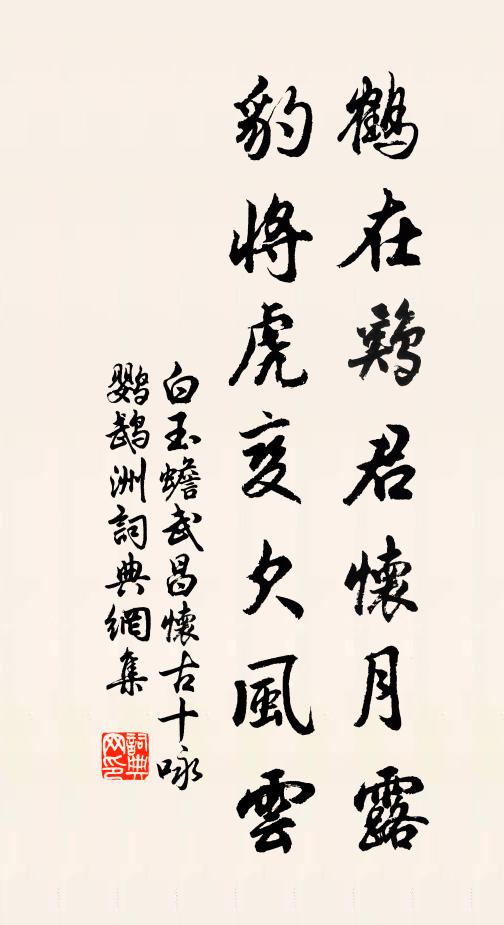 鶴在鷄君懷月露
豹將虎变欠風雲
白玉蟾武昌懷古十咏
鸚鵡洲詞典網集
詞典网印